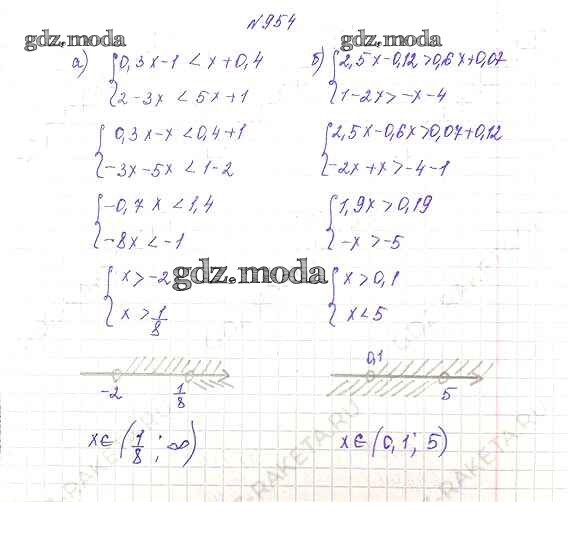 №954
gdz.moda
gdz.moda
а) { 0,3x-1 < x+0,4
2-3x < 5x+1
{ 0,3x-x < 0,4+1
-3x-5x < 1-2
{ -0,7x < 1,4
-8x < -1
{ x > -2
x > 1/8
-2 1/8
x ∈ (1/8; ∞)
б) { 2,5x-0,12 > 0,6x+0,07
1-2x > -x-4
{ 2,5x-0,6x > 0,07+0,12
-2x+x > -4-1
{ 1,9x > 0,19
-x > -5
gdz.moda
{ x > 0,1
x < 5
0,1
5
x ∈ (0,1; 5)